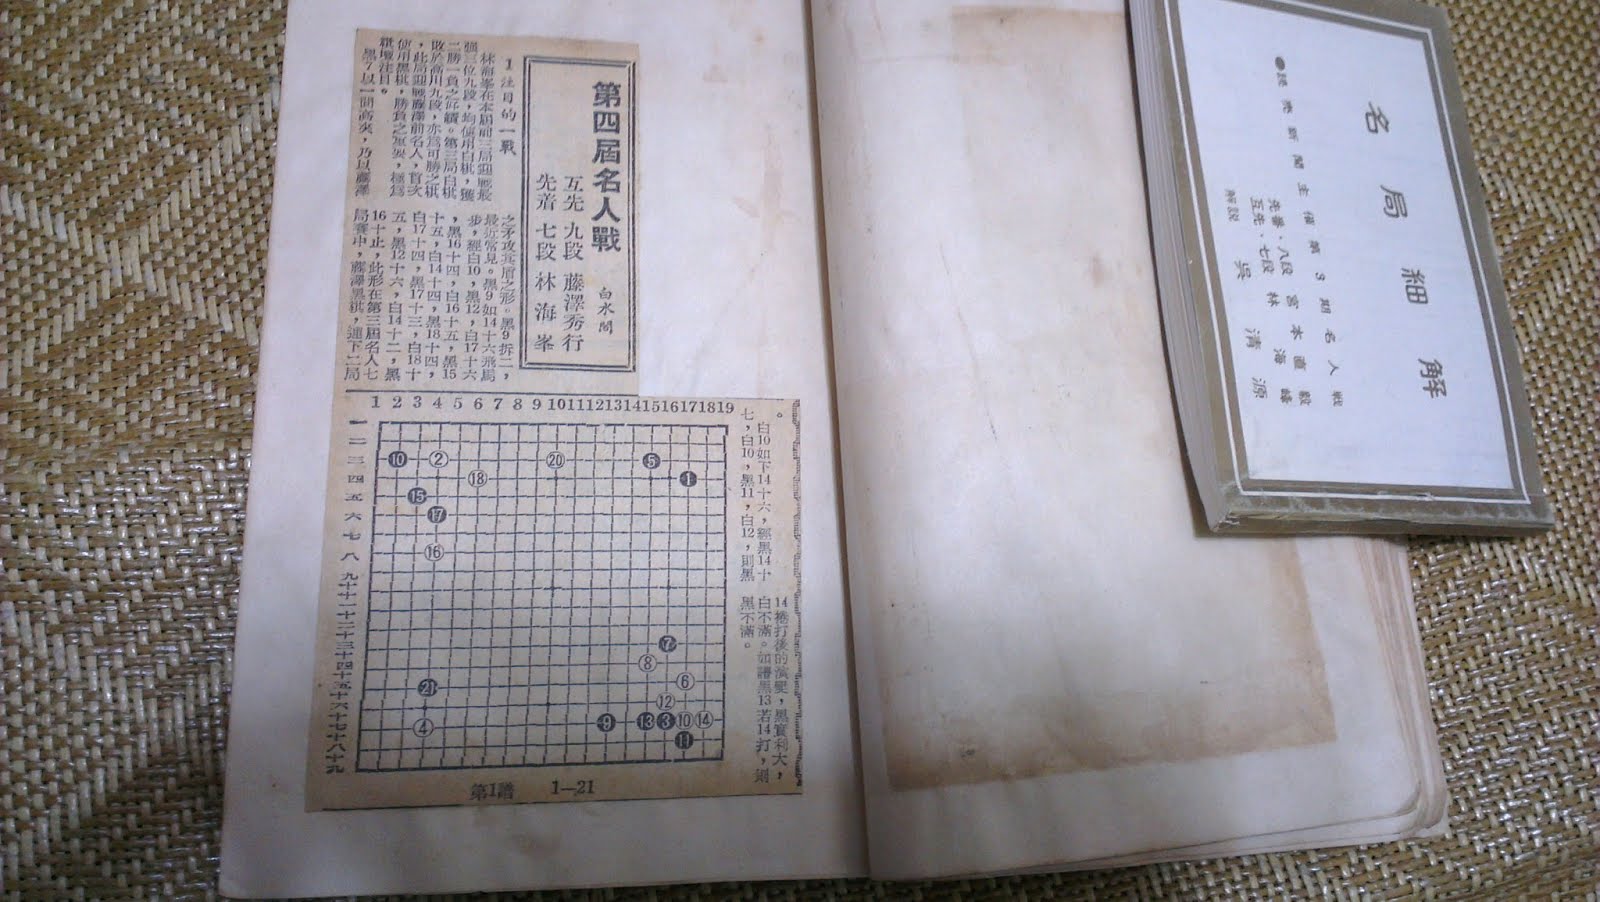 第四屆名人戰
白水閣
互先 九段 藤澤秀行
先着 七段 林海峯
1 注目的一戰
林海峯在本屆前三局迎戰最
強三位九段,均使用白棋,獲
二勝一負之成績。第三局白棋
敗於高川九段,亦爲可勝之棋
,此局迎戰藤澤前名人,首次
使用黑棋,勝負之重要,極爲
棋壇注目。
黑7以一間高夾,乃以藤澤
之矛攻其盾之形。黑9拆二,
最近常見。黑9如14十六飛,
步,經白10,黑12,白17十六
,黑16十四,白16十五,黑15
十五,白14十四,黑18十四,
白17十四,黑17十三,白18十
五,黑12十六,白14十二,黑
16十止,此形在第三屆名人七
局賽中,藤澤黑棋,連下二局
。
白10如下14十六,經黑14十
七,白10,黑11,白12,則黑
14捲打後的演變,黑實利大,
白不滿。如譜黑13若14打,則
黑不滿。
1 2 3 4 5 6 7 8 9 10 11 12 13 14 15 16 17 18 19
一
二
三
四
五
六
七
八
九
十
十一
十二
十三
十四
十五
十六
十七
十八
十九
10 2 20 5
18 1
15
17
16
7
8
6
21
12
4 9 13 3 10 14
11
第1譜 1—21
名局細解
●読売新聞主催第3期名人戦
先番・八段 宮本直毅
互先・七段 林海峰
解説 呉清源